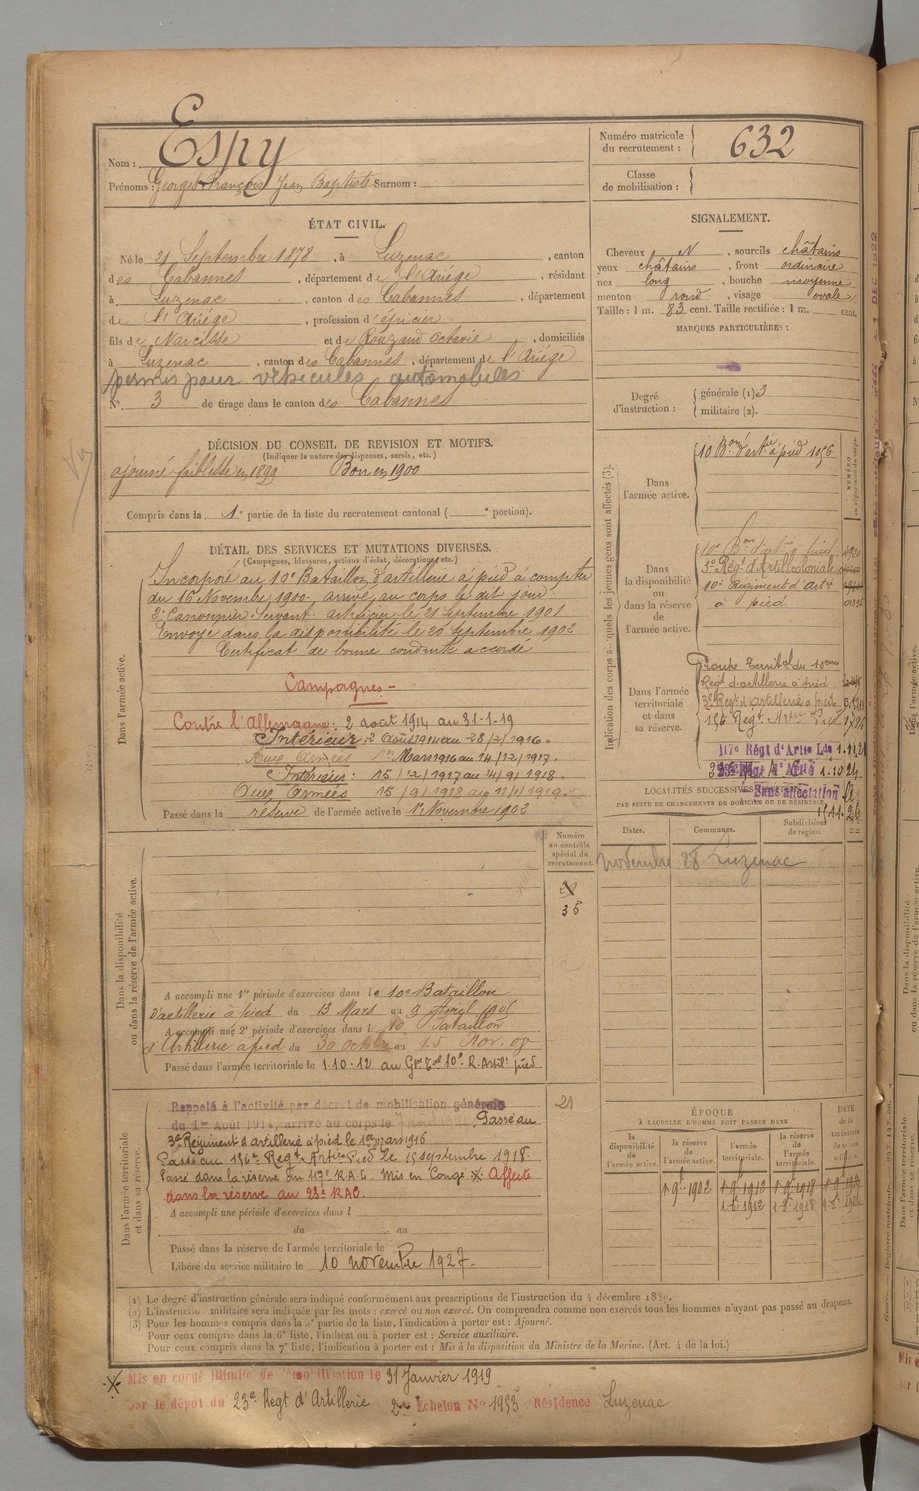 Nom : Espy
Prénoms : Georges François Jean Baptiste Surnom :
Numéro matricule du recrutement : 632
Classe de mobilisation :
ÉTAT CIVIL.
Né le 21 Septembre 1878, à Luzenac, canton
des Cabannes, département de l'Ariège, résidant
à Luzenac, canton des Cabannes, département
de l'Ariège, profession d'épicier
fils de Narcisse et de Rouzaud Octavie, domiciliés
à Luzenac, canton des Cabannes, département de l'Ariège
permis pour véhicules automobiles
N° 3 de tirage dans le canton des Cabannes
SIGNALEMENT.
Cheveux N, sourcils châtains
yeux châtains, front ordinaire
nez long, bouche moyenne
menton rond, visage ovale
Taille : 1 m. 83 cent. Taille rectifiée : 1 m. cent.
MARQUES PARTICULIÈRES :
Degré d'instruction : générale (1) 3
militaire (2).
DÉCISION DU CONSEIL DE REVISION ET MOTIFS.
(Indiquer la nature des dispenses, sursis, etc.)
ajourné faiblesse en 1899 Bon en 1900
Compris dans la 1e partie de la liste du recrutement cantonal ( e portion).
DÉTAIL DES SERVICES ET MUTATIONS DIVERSES.
(Campagnes, blessures, actions d'éclat, décorations, etc.)
Dans l'armée active.
Incorporé au 10e Bataillon d'artillerie à pied à compter
du 15 Novembre 1900, arrivé au corps le dit jour.
2e Canonnier Servant artificier le 21 Septembre 1901
Envoyé dans la disponibilité le 20 Septembre 1902
Certificat de bonne conduite accordé
Campagnes
Contre l'Allemagne : 2 août 1914 au 31-1-19
Intérieur : 2 Août 1914 au 28/2/1916.
Aux Armées 1er Mars 1916 au 14/12/1917.
Intérieur : 15/12/1917 au 14/9/1918.
Aux Armées 15/9/1918 au
Passé dans la réserve de l'armée active le 1er Novembre 1902
Indication des corps auxquels les jeunes gens sont affectés (3).
Dans l'armée active.
10 Bon d'artie à pied 1056
Dans la disponibilité ou dans la réserve de l'armée active.
10e Bon d'artie à pied
3e Régt d'Artie Coloniale
10e Régiment d'Artie
à pied
Dans l'armée territoriale et dans sa réserve.
Groupe territal du 10eme
Régt d'artillerie à pied
3e Régt d'artillerie à pied
156 Régt Artie Pied
117e Régt d'Artie Lde 1.11.21
23e Régt d'Artie 1.10.24
Sans affectation
LOCALITÉS SUCCESSIVES
PAR SUITE DE CHANGEMENTS DE DOMICILE OU DE RÉSIDENCE
Dates. Communes. Subdivisions de région.
novembre 28 Luzenac
Numéro au contrôle spécial du recrutement.
35
21
Dans la disponibilité ou dans la réserve de l'armée active.
A accompli une 1re période d'exercices dans le 10e Bataillon
d'artillerie à pied du 13 Mars au 9 Avril 1906
A accompli une 2e période d'exercices dans l 10 Bataillon
d'Artillerie à pied du 30 octobre au 15 Nov. 09
Passé dans l'armée territoriale le 1-10-12 au Gpe Tal 10e R. Artil. pied
Dans l'armée territoriale et dans sa réserve.
Rappelé à l'activité par décret de mobilisation générale
du 1er Août 1914, arrivé au corps le Passé au
3e Régiment d'artillerie à pied le 1er mars 1916
Passé au 156e Régt Artie Pied le 15 septembre 1918
Passé dans la réserve du 117e R.A.L. Mis en Congé ※ Affecté
dans la réserve au 23e RAC.
A accompli une période d'exercices dans l
du au
Passé dans la réserve de l'armée territoriale le
Libéré du service militaire le 10 novembre 1927
ÉPOQUE
À LAQUELLE L'HOMME DOIT PASSER DANS
la disponibilité de l'armée active. la réserve de l'armée active. l'armée territoriale. la réserve de l'armée territoriale. DATE de la LIBÉRATION du service militaire.
1 9e 1902
(1) Le degré d'instruction générale sera indiqué conformément aux prescriptions de l'instruction du 4 décembre 1889.
(2) L'instruction militaire sera indiquée par les mots : exercé ou non exercé. On comprendra comme non exercés tous les hommes n'ayant pas passé au drapeau.
(3) Pour les hommes compris dans la 5e partie de la liste, l'indication à porter est : Ajourné.
Pour ceux compris dans la 6e liste, l'indication à porter est : Service auxiliaire.
Pour ceux compris dans la 7e liste, l'indication à porter est : Mis à la disposition du Ministre de la Marine. (Art. 4 de la loi.)
※ Mis en congé illimité de démobilisation le 31 Janvier 1919
par le dépôt du 23e Régt d'Artillerie 2e Echelon N° 1953 Résidence Luzenac